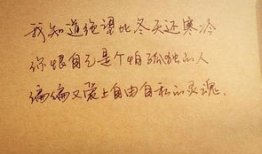 我知道绝课比冬天还寒冷
你恨自己是个怕孤独的人
偏偏又爱上自由自私的灵魂.